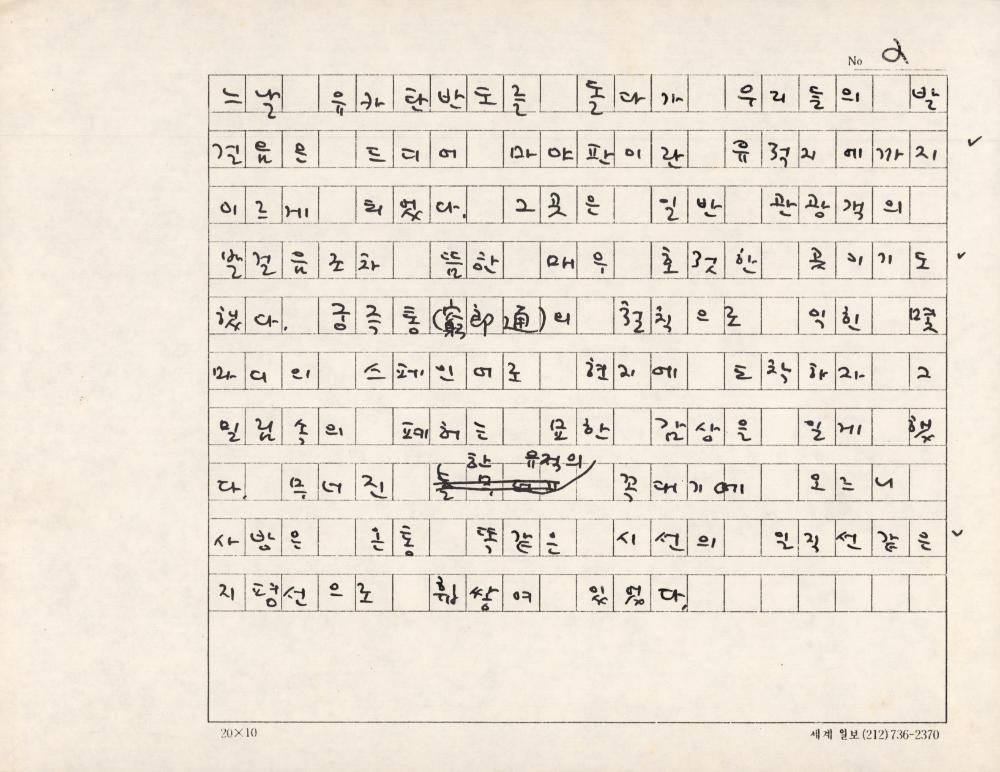 No 2
느날 유카탄반도를 돌다가 우리들의 발
걸음은 드디어 마야판이란 유적지에까지
이르게 되었다. 그곳은 일반 관광객의
발걸음조차 뜸한 매우 호젓한 곳이기도
했다. 궁즉통(窮卽通)의 철칙으로 익힌 몇
마디의 스페인어로 현지에 도착하자 그
밀림속의 폐허는 묘한 감상을 일게 했
한 유적의
다. 무너진 꼭대기에 오르니
사방은 온통 똑같은 시선의 일직선같은
지평선으로 휩쌓여 있었다.
20×10
세계일보 (212) 736-2370